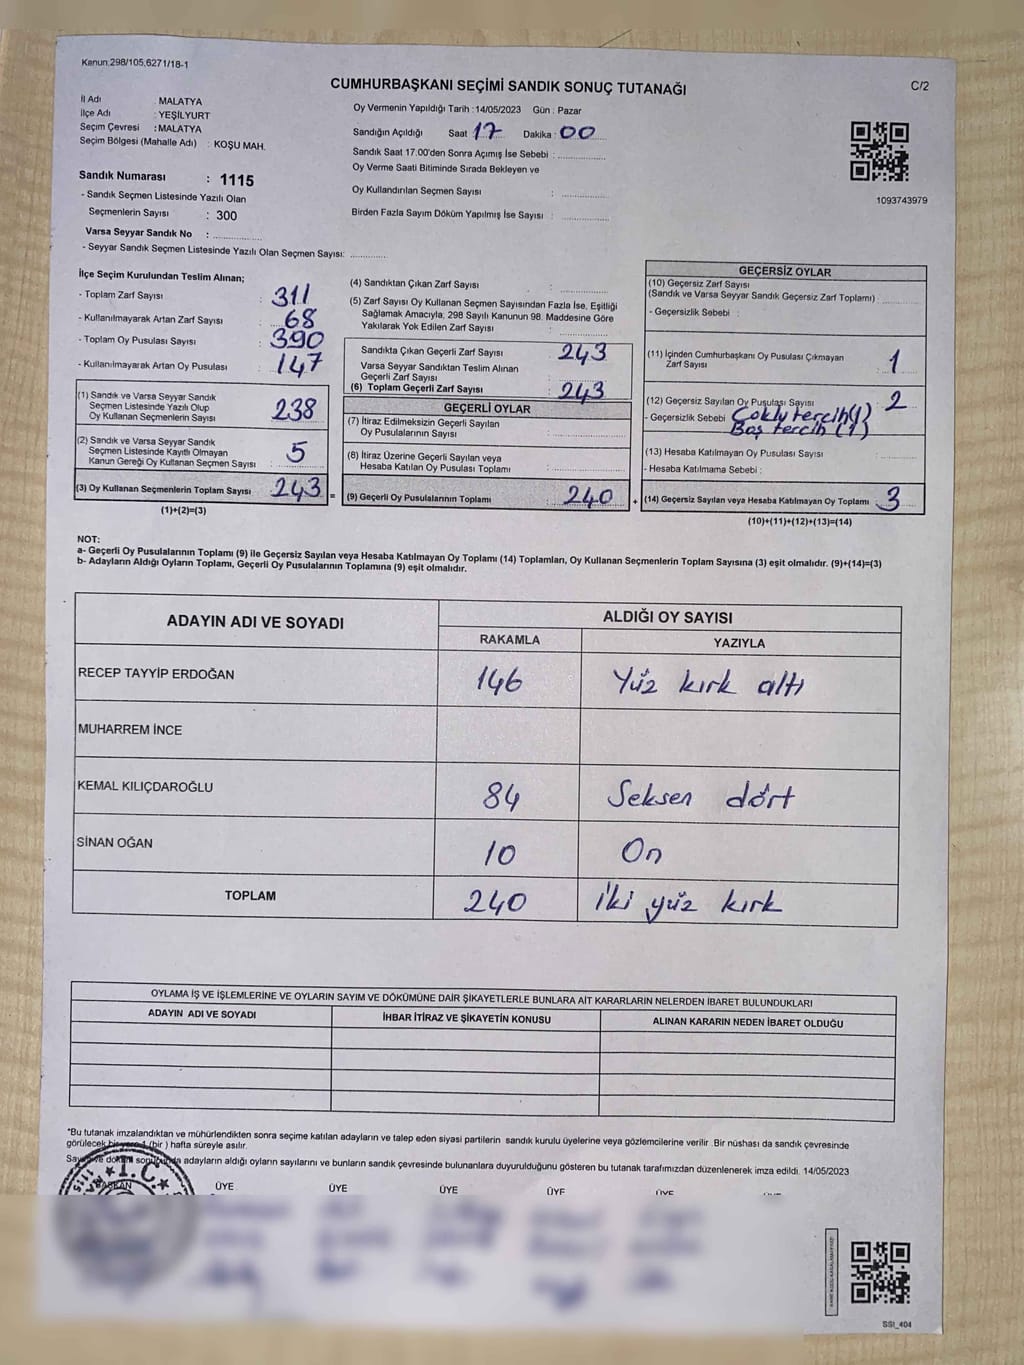 Kanun.298/105,6271/18-1
CUMHURBAŞKANI SEÇİMİ SANDIK SONUÇ TUTANAĞI
C/2
İl Adı : MALATYA
İlçe Adı : YEŞİLYURT
Seçim Çevresi : MALATYA
Seçim Bölgesi (Mahalle Adı) : KOŞU MAH.
Sandık Numarası : 1115
- Sandık Seçmen Listesinde Yazılı Olan
Seçmenlerin Sayısı : 300
Varsa Seyyar Sandık No :
- Seyyar Sandık Seçmen Listesinde Yazılı Olan Seçmen Sayısı:
Oy Vermenin Yapıldığı Tarih : 14/05/2023 Gün : Pazar
Sandığın Açıldığı Saat 17 Dakika : 00
Sandık Saat 17.00'den Sonra Açımış İse Sebebi :
Oy Verme Saati Bitiminde Sırada Bekleyen ve
Oy Kullandırılan Seçmen Sayısı :
Birden Fazla Sayım Döküm Yapılmış İse Sayısı :
1093743979
İlçe Seçim Kurulundan Teslim Alınan;
- Toplam Zarf Sayısı : 311
- Kullanılmayarak Artan Zarf Sayısı : 68
- Toplam Oy Pusulası Sayısı : 390
- Kullanılmayarak Artan Oy Pusulası : 147
(1) Sandık ve Varsa Seyyar Sandık
Seçmen Listesinde Yazılı Olup
Oy Kullanan Seçmenlerin Sayısı : 238
(2) Sandık ve Varsa Seyyar Sandık
Seçmen Listesinde Kayıtlı Olmayan
Kanun Gereği Oy Kullanan Seçmen Sayısı : 5
(3) Oy Kullanan Seçmenlerin Toplam Sayısı : 243 =
(1)+(2)=(3)
(4) Sandıktan Çıkan Zarf Sayısı :
(5) Zarf Sayısı Oy Kullanan Seçmen Sayısından Fazla İse, Eşitliği
Sağlamak Amacıyla, 298 Sayılı Kanunun 98. Maddesine Göre
Yakılarak Yok Edilen Zarf Sayısı :
Sandıkta Çıkan Geçerli Zarf Sayısı : 243
Varsa Seyyar Sandıktan Teslim Alınan
Geçerli Zarf Sayısı :
(6) Toplam Geçerli Zarf Sayısı : 243
GEÇERLİ OYLAR
(7) İtiraz Edilmeksizin Geçerli Sayılan
Oy Pusulalarının Sayısı :
(8) İtiraz Üzerine Geçerli Sayılan veya
Hesaba Katılan Oy Pusulası Toplamı :
(9) Geçerli Oy Pusulalarının Toplamı : 240 +
GEÇERSİZ OYLAR
(10) Geçersiz Zarf Sayısı
(Sandık ve Varsa Seyyar Sandık Geçersiz Zarf Toplamı) :
- Geçersizlik Sebebi :
(11) İçinden Cumhurbaşkanı Oy Pusulası Çıkmayan
Zarf Sayısı : 1
(12) Geçersiz Sayılan Oy Pusulası Sayısı : 2
- Geçersizlik Sebebi : Çoklu tercih(1)
Boş tercih (1)
(13) Hesaba Katılmayan Oy Pusulası Sayısı :
- Hesaba Katılmama Sebebi :
(14) Geçersiz Sayılan veya Hesaba Katılmayan Oy Toplamı : 3
(10)+(11)+(12)+(13)=(14)
NOT:
a- Geçerli Oy Pusulalarının Toplamı (9) ile Geçersiz Sayılan veya Hesaba Katılmayan Oy Toplamı (14) Toplamları, Oy Kullanan Seçmenlerin Toplam Sayısına (3) eşit olmalıdır. (9)+(14)=(3)
b- Adayların Aldığı Oyların Toplamı, Geçerli Oy Pusulalarının Toplamına (9) eşit olmalıdır.
ADAYIN ADI VE SOYADI ALDIĞI OY SAYISI
RAKAMLA YAZIYLA
RECEP TAYYİP ERDOĞAN 146 Yüz kırk altı
MUHARREM İNCE
KEMAL KILIÇDAROĞLU 84 Seksen dört
SİNAN OĞAN 10 On
TOPLAM 240 İki yüz kırk
OYLAMA İŞ VE İŞLEMLERİNE VE OYLARIN SAYIM VE DÖKÜMÜNE DAİR ŞİKAYETLERLE BUNLARA AİT KARARLARIN NELERDEN İBARET BULUNDUKLARI
ADAYIN ADI VE SOYADI İHBAR İTİRAZ VE ŞİKAYETİN KONUSU ALINAN KARARIN NEDEN İBARET OLDUĞU
*Bu tutanak imzalandıktan ve mühürlendikten sonra seçime katılan adayların ve talep eden siyasi partilerin sandık kurulu üyelerine veya gözlemcilerine verilir. Bir nüshası da sandık çevresinde
görülecek bir yere 1 (bir) hafta süreyle asılır.
adayların aldığı oyların sayılarını ve bunların sandık çevresinde bulunanlara duyurulduğunu gösteren bu tutanak tarafımızdan düzenlenerek imza edildi. 14/05/2023
T.C.
BAŞKAN ÜYE ÜYE ÜYE ÜYE ÜYE
SSI_404